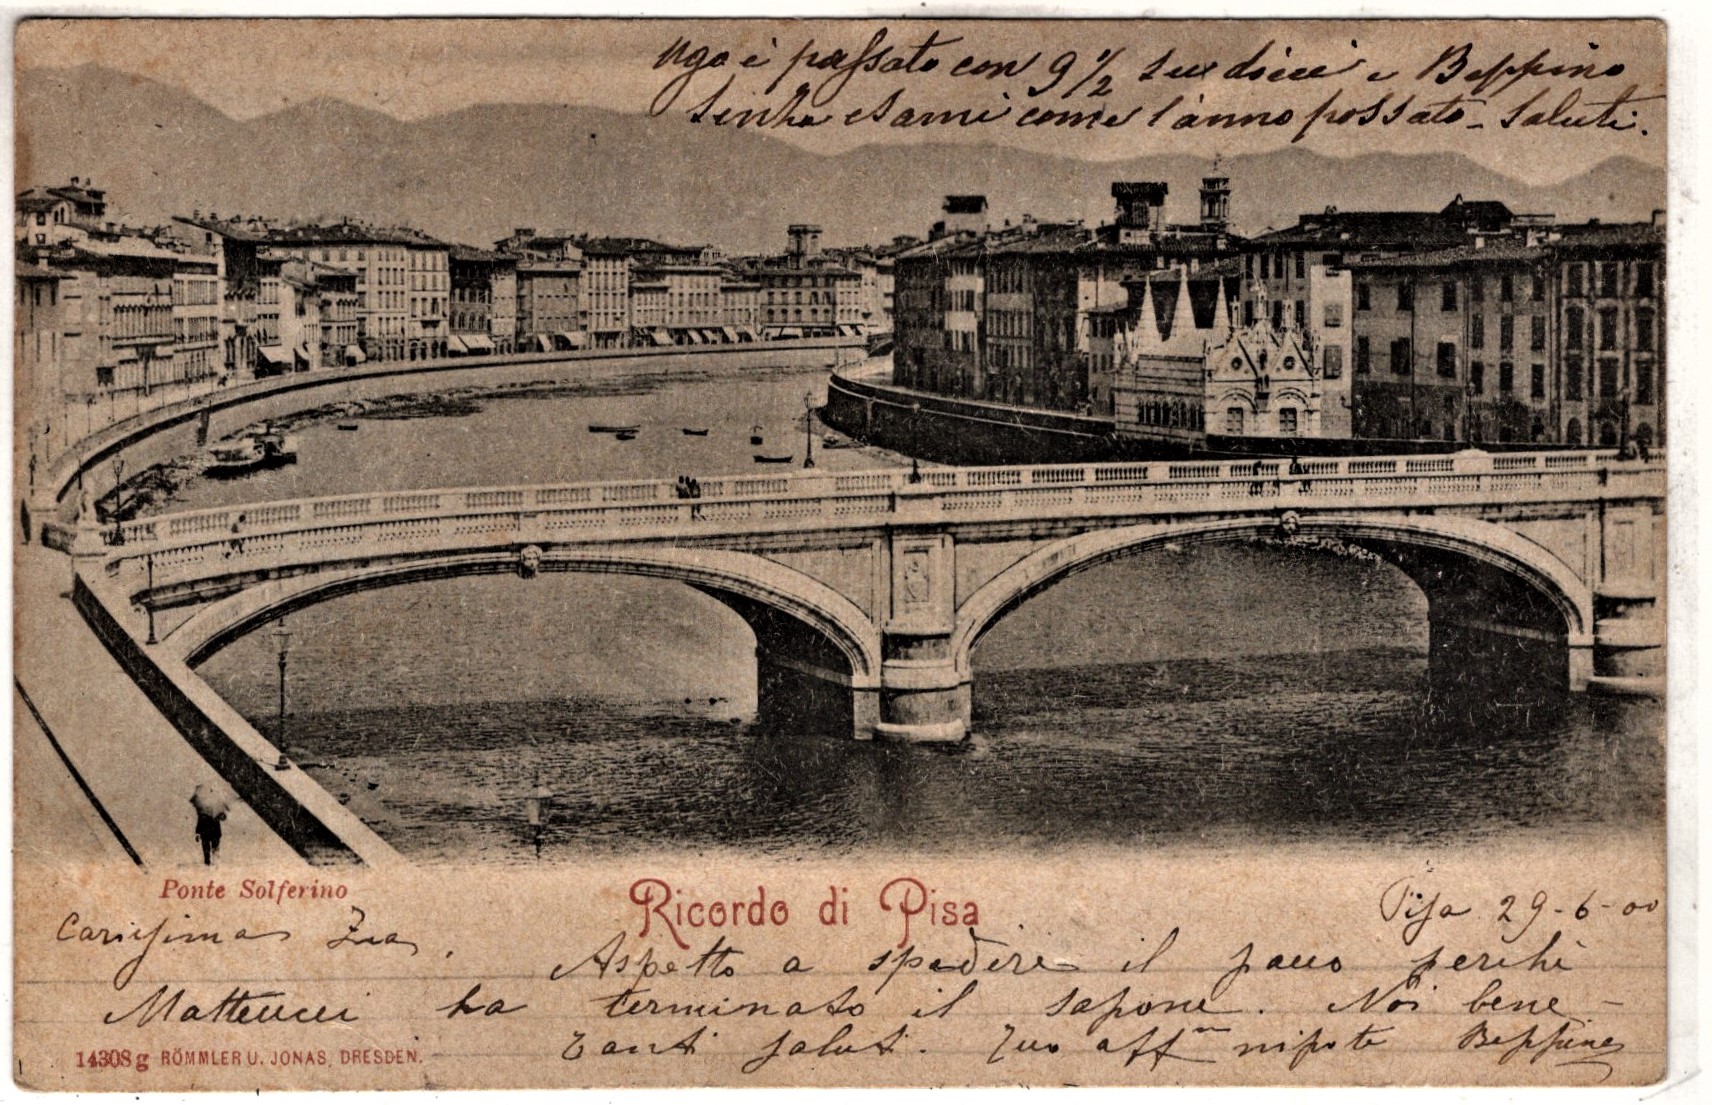 Ugo è passato con 9 1/2 su dieci e Beppino
senza esami come l'anno passato - Saluti.
Ponte Solferino
Ricordo di Pisa
Pisa 29-6-00
Carissima Zia,
Aspetto a spedire il pacco perchè
Matteucci ha terminato il sapone. Noi bene -
Tanti saluti. Tuo aff.mo nipote Beppino
14308g RÖMMLER U. JONAS, DRESDEN.